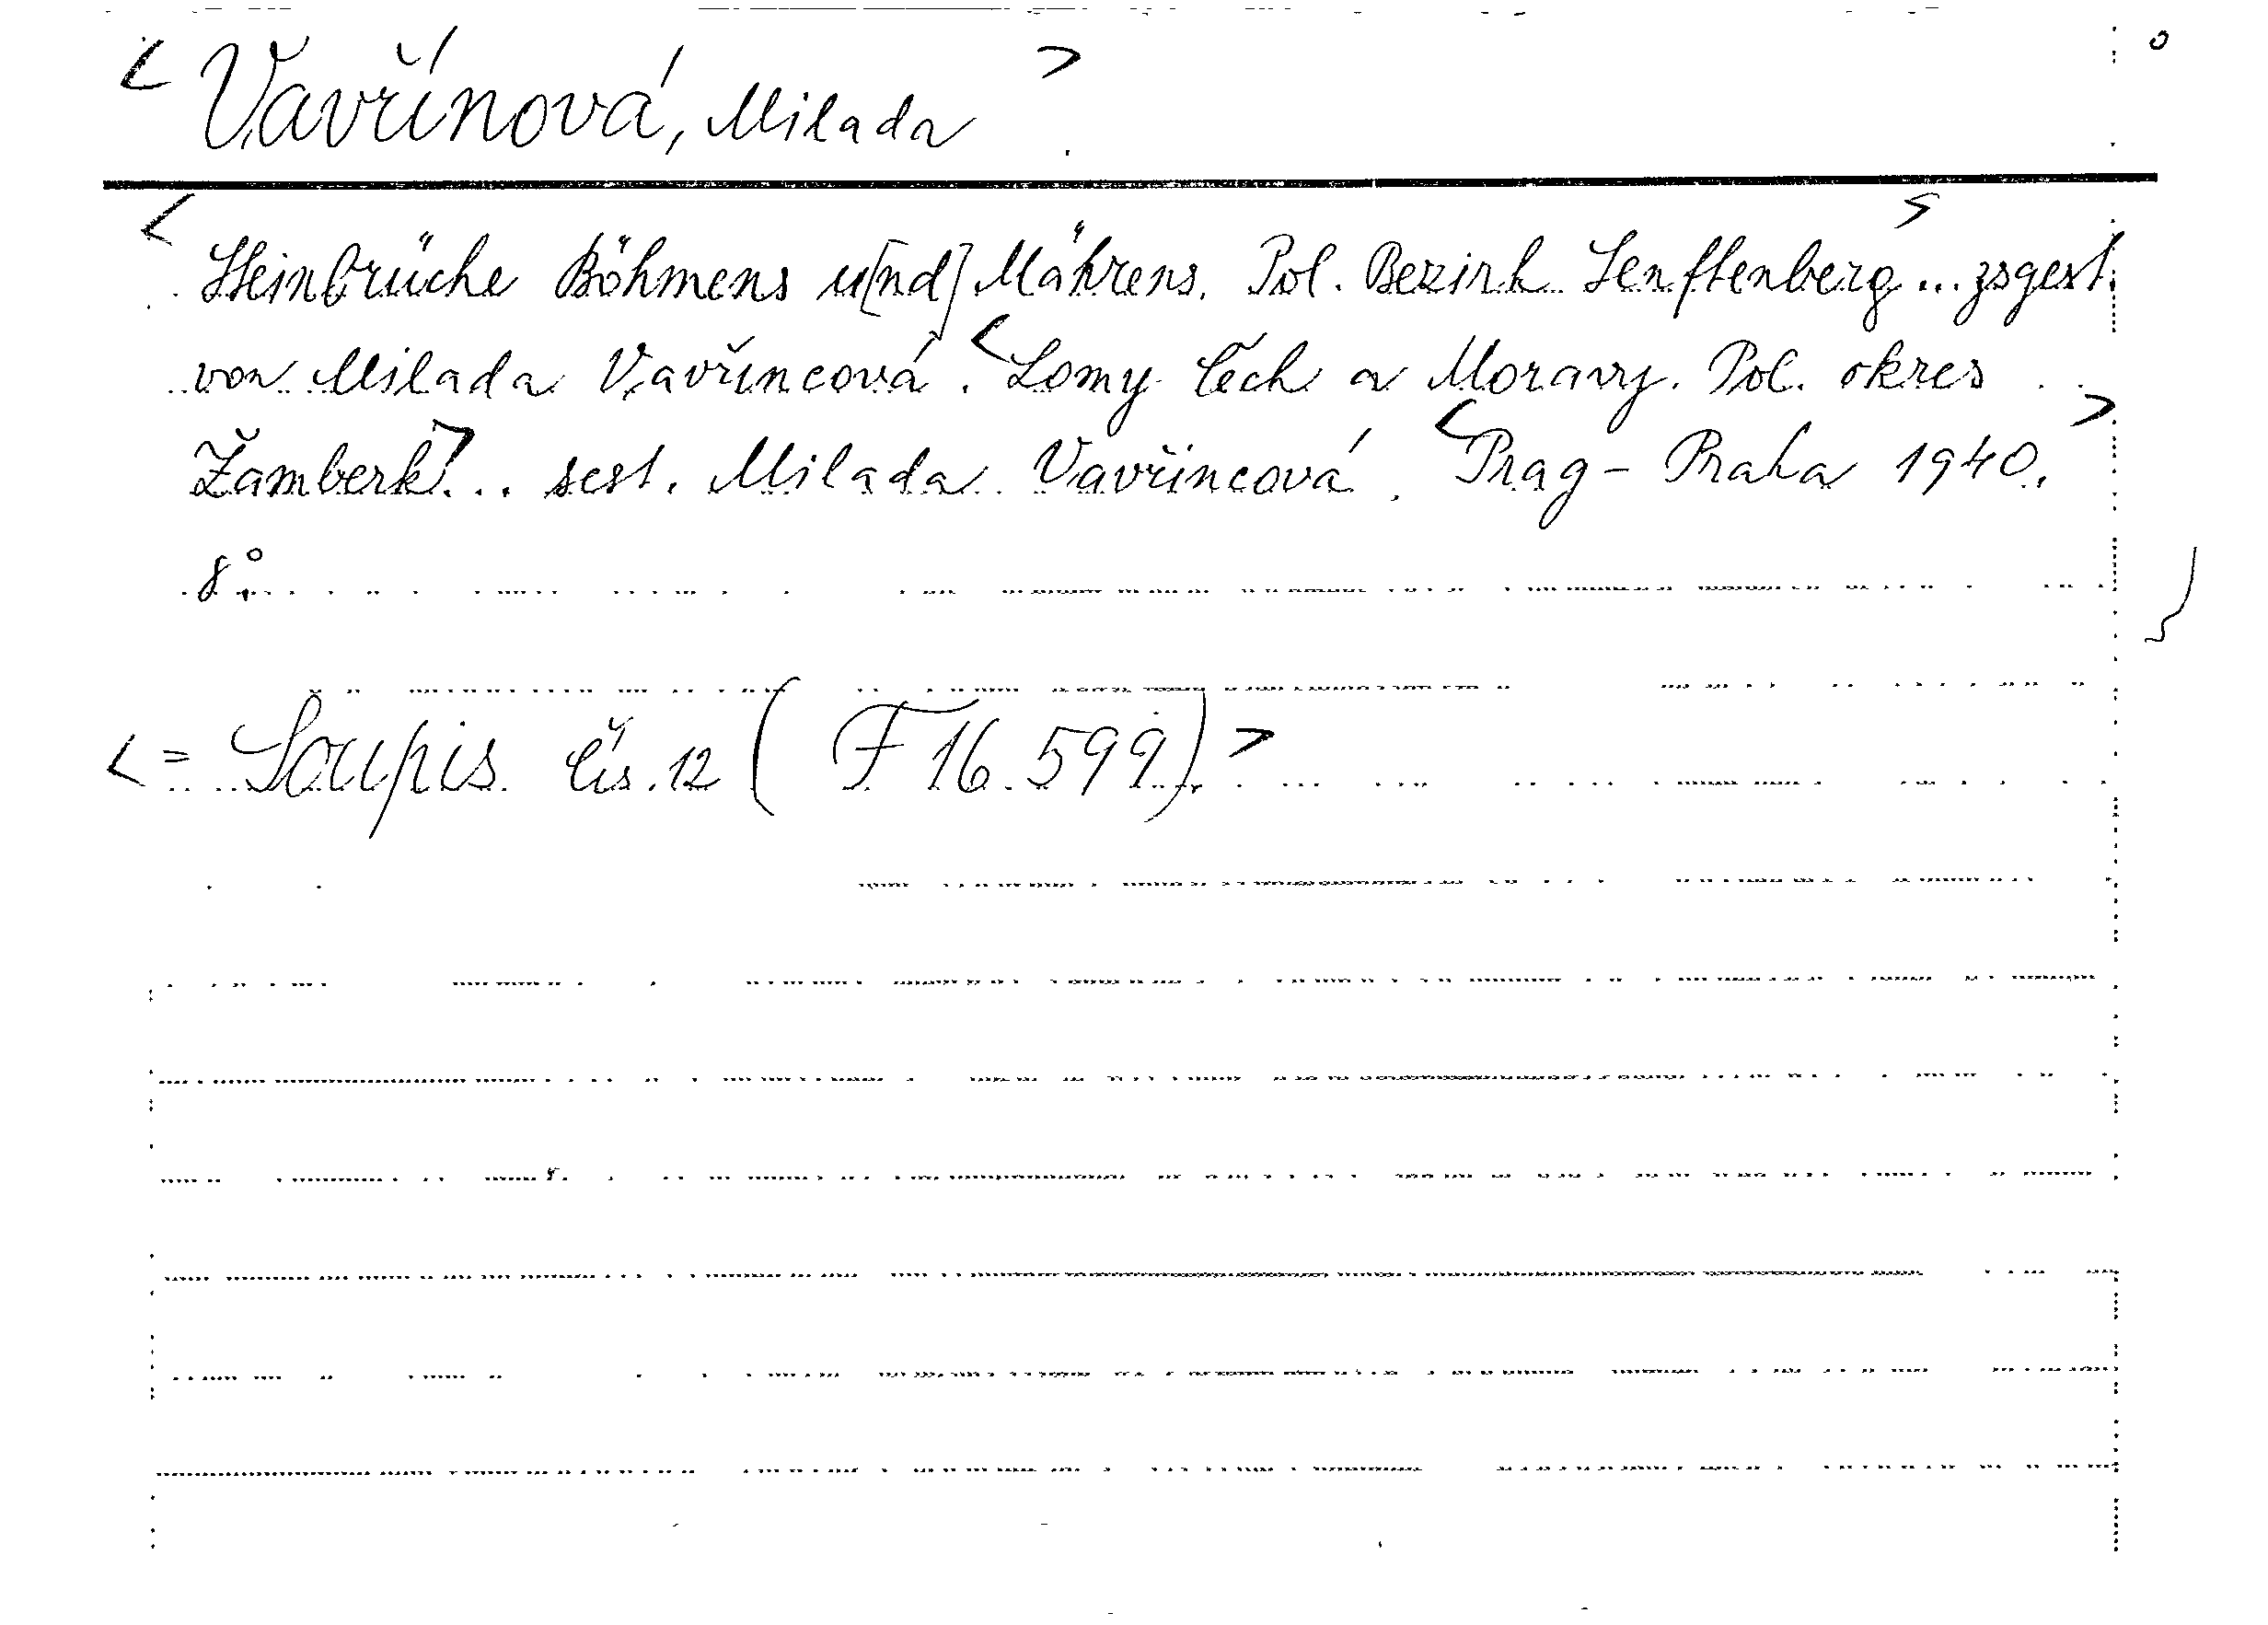 < Vavřínová, Milada >
< Steinbrüche Böhmens u[nd] Mährens. Pol. Bezirk Senftenberg > ... zsgest.
von Milada Vavřincová. < Lomy Čech a Moravy. Pol. okres
Žamberk > ... sest. Milada Vavřincová. < Prag - Praha 1940. >
8°.
< = Soupis čís. 12 ( F 16.599 ). >